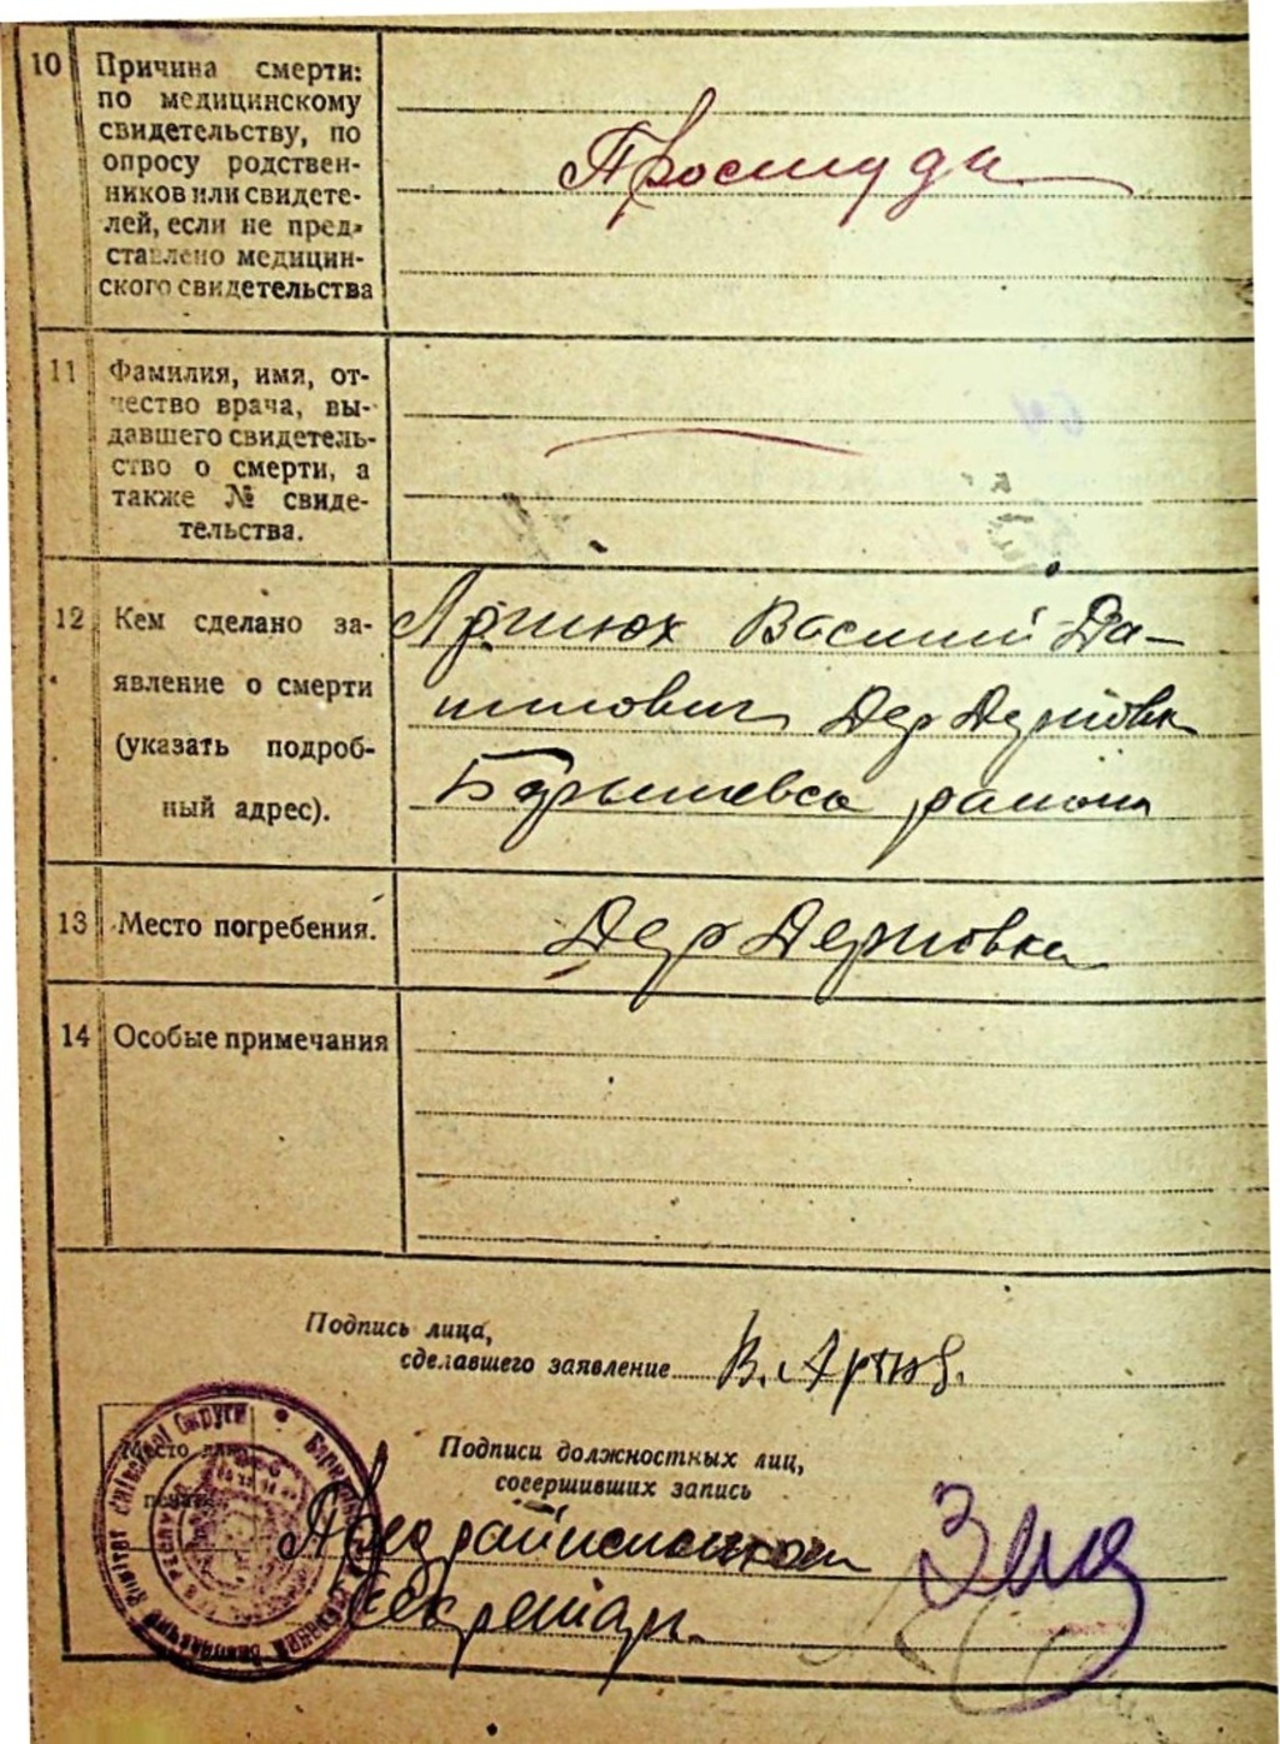 10 Причина смерти:
по медицинскому
свидетельству, по
опросу родствен-
ников или свидете-
лей, если не пред-
ставлено медицин-
ского свидетельства
Простуда
11 Фамилия, имя, от-
чество врача, вы-
давшего свидетель-
ство о смерти, а
также № свиде-
тельства.
12 Кем сделано за-
явление о смерти
(указать подроб-
ный адрес).
Артюх Василий Да-
нилович Дер Дерновка
Барышевск района
13 Место погребения.
Дер Дерновка
14 Особые примечания
Подпись лица,
сделавшего заявление В. Артюх.
Место для
печати
Подписи должностных лиц,
совершивших запись
Пред райисполкома
Секретарь